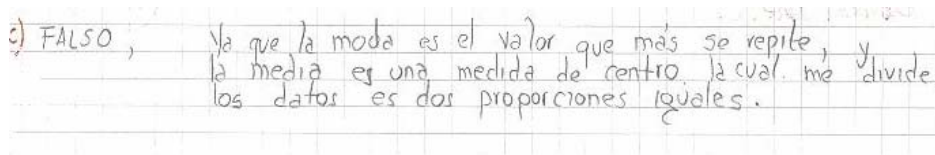 c) FALSO, Ya que la moda es el valor que más se repite, y
la media es una medida de centro. la cual. me divide
los datos es dos proporciones iguales.